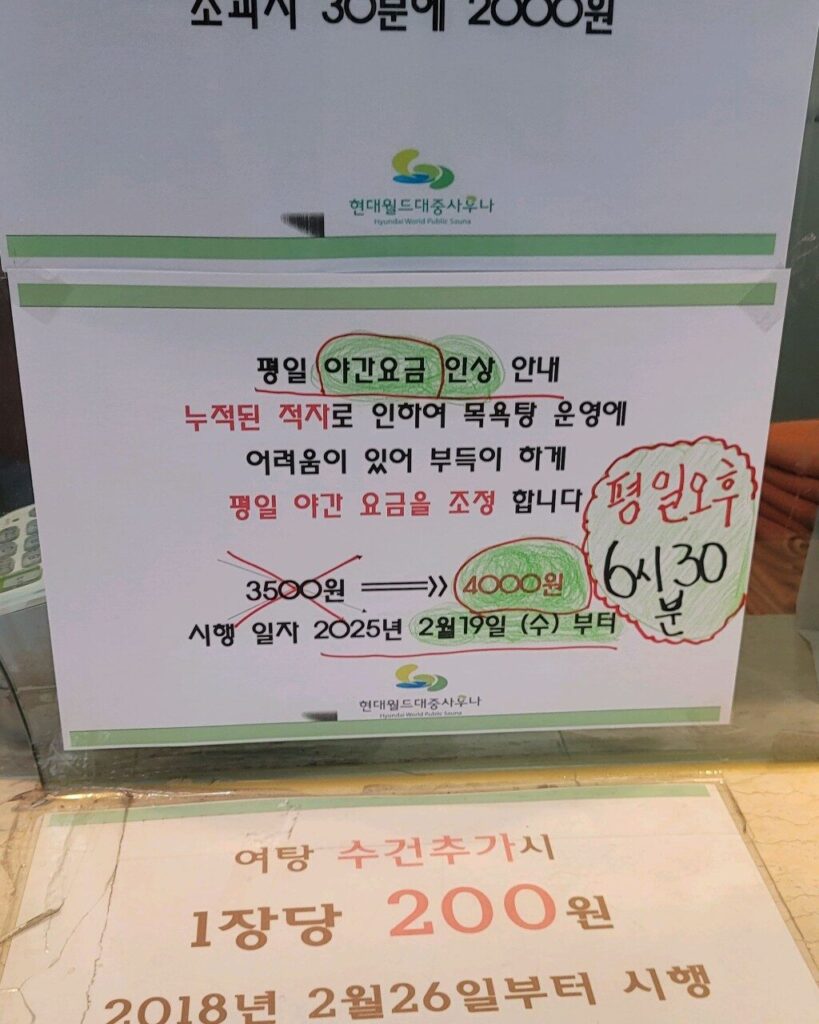 초과시 30분에 2000원
현대월드대중사우나
Hyundai World Public Sauna
평일 야간요금 인상 안내
누적된 적자로 인하여 목욕탕 운영에
어려움이 있어 부득이 하게
평일 야간 요금을 조정 합니다
평일오후
6시30
분
3500원 ══» 4000원
시행 일자 2025년 2월19일 (수) 부터
현대월드대중사우나
Hyundai World Public Sauna
여탕 수건추가시
1장당 200원
2018년 2월26일부터 시행